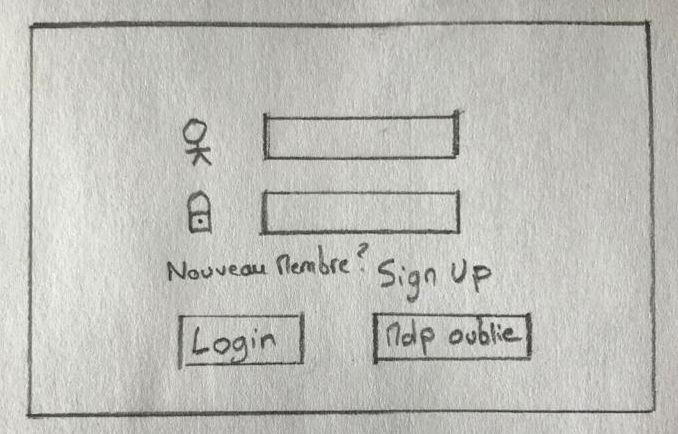 Nouveau Membre? Sign Up
Login
Mdp oublie